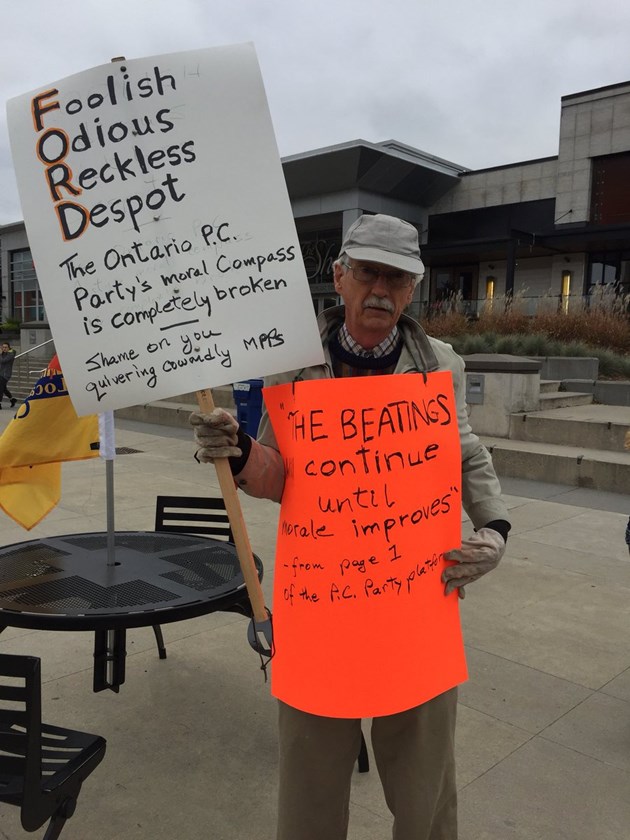 Foolish
Odious
Reckless
Despot
The Ontario P.C.
Party's moral Compass
is completely broken
Shame on you
quivering cowardly MPPs
"THE BEATINGS
continue
until
morale improves"
- from page 1
of the P.C. Party platform